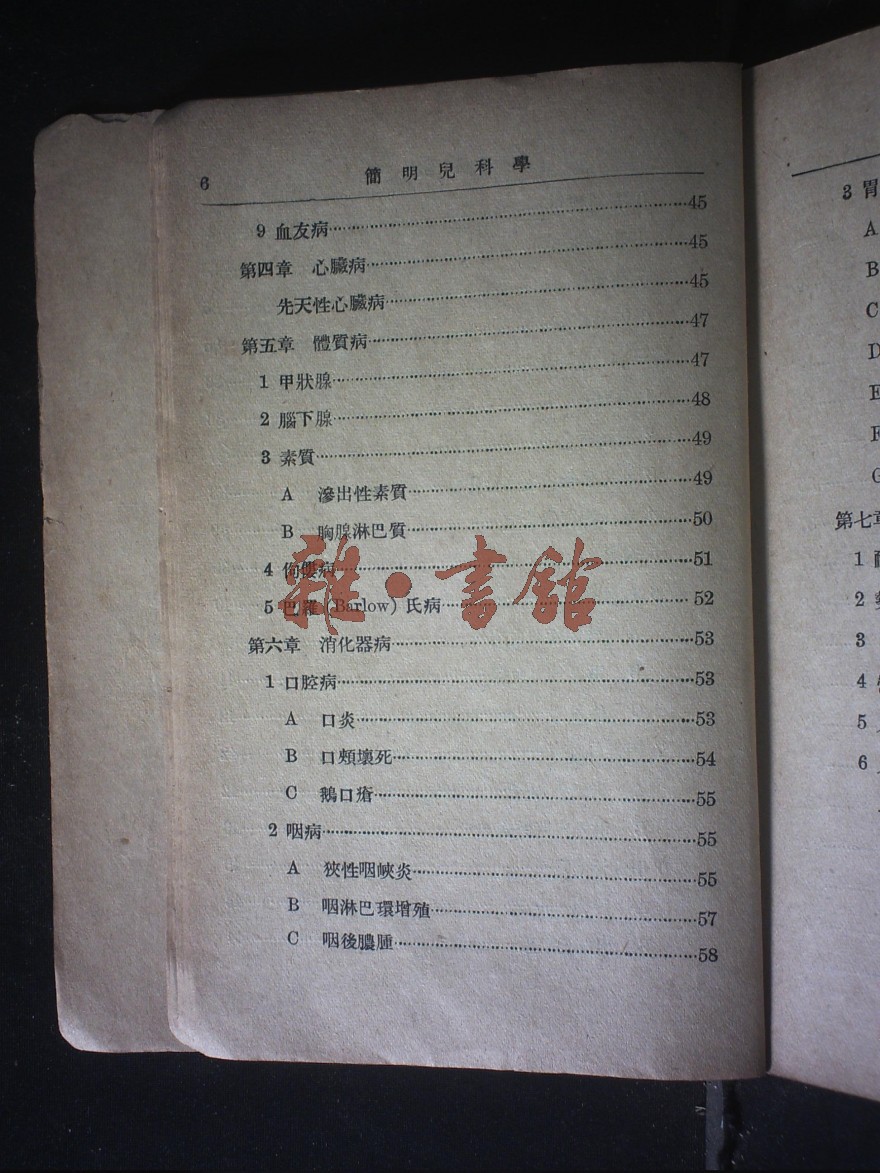 6 簡明兒科學
9 血友病 45
第四章 心臟病 45
先天性心臟病 45
第五章 體質病 47
1 甲狀腺 47
2 腦下腺 48
3 素質 49
A 滲出性素質 49
B 胸腺淋巴質 50
4 佝僂病 51
5 巴羅(Barlow)氏病 52
第六章 消化器病 53
1 口腔病 53
A 口炎 53
B 口頰壞死 54
C 鵝口瘡 55
2 咽病 55
A 狹性咽峽炎 55
B 咽淋巴環增殖 57
C 咽後膿腫 58
雜·書館
3 胃
A
B
C
D
E
F
G
第七章
1
2
3
4
5
6